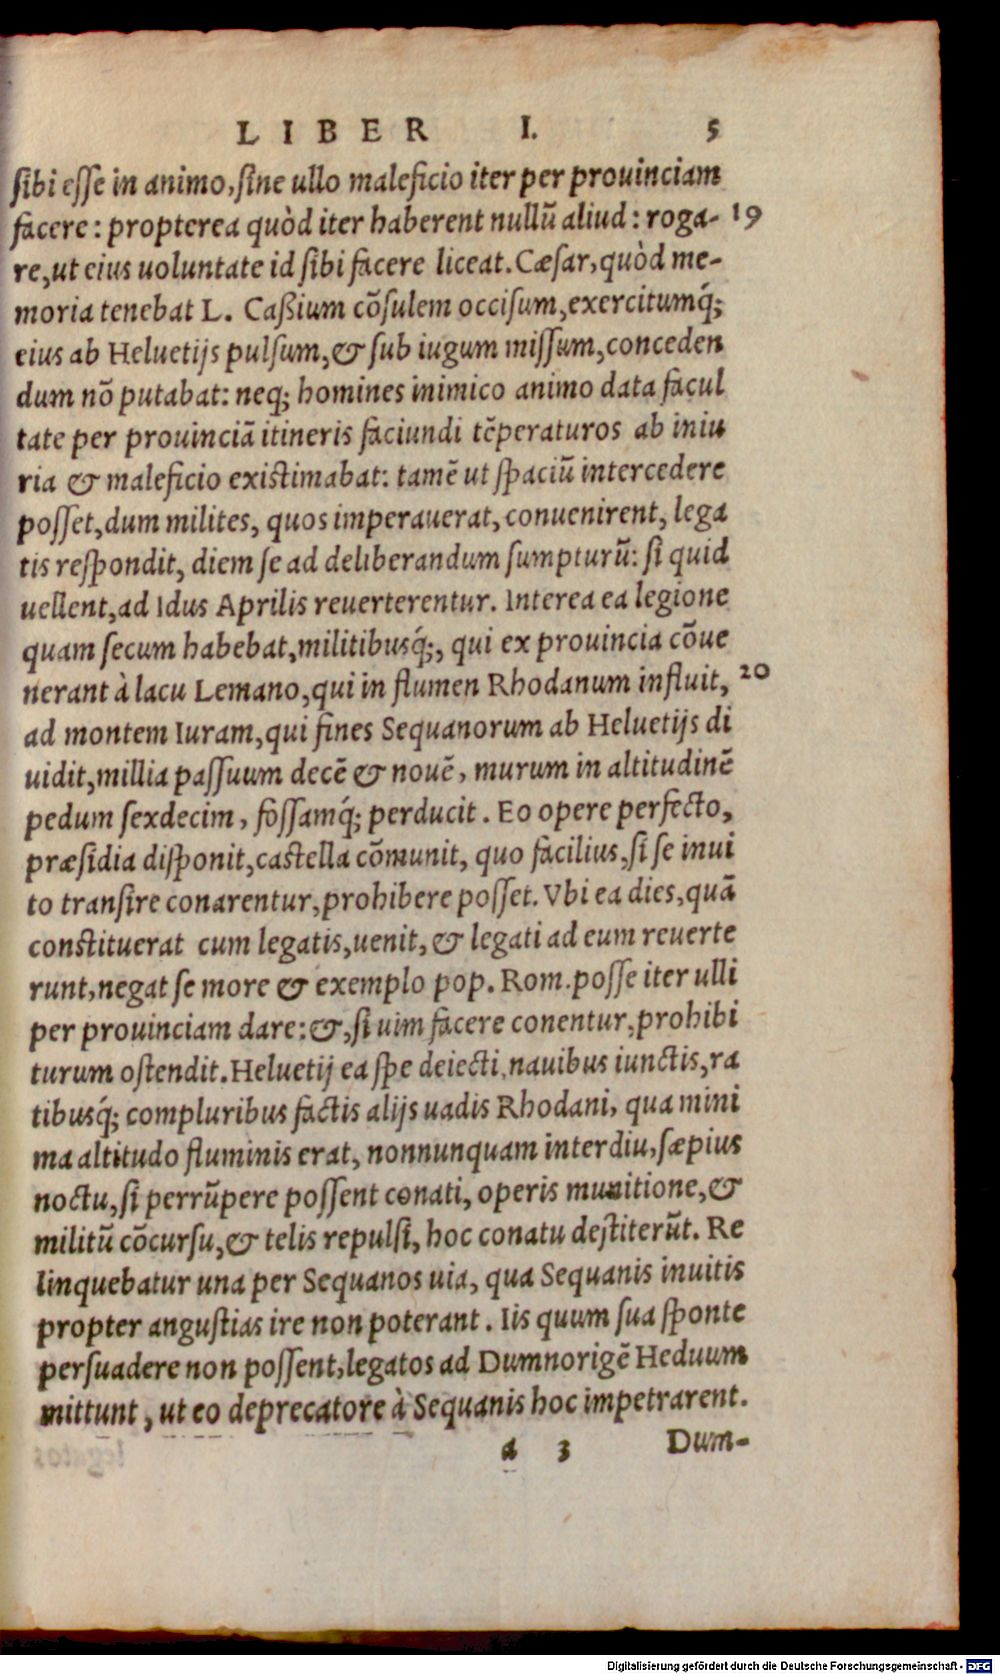 LIBER I. 5
ſibi eſſe in animo, ſine ullo maleficio iter per prouinciam
facere: propterea quòd iter haberent nullũ aliud: roga- 19
re, ut eius uoluntate id ſibi facere liceat. Cæſar, quòd me-
moria tenebat L. Caßium cõſulem occiſum, exercitumq́;
eius ab Heluetijs pulſum, & ſub iugum miſſum, conceden
dum nõ putabat: neq; homines inimico animo data facul
tate per prouinciã itineris faciundi tẽperaturos ab iniu
ria & maleficio existimabat: tamẽ ut ſpaciũ intercedere
poſſet, dum milites, quos imperauerat, conuenirent, lega
tis reſpondit, diem ſe ad deliberandum ſumpturũ: ſi quid
uellent, ad Idus Aprilis reuerterentur. Interea ea legione
quam ſecum habebat, militibusq́;, qui ex prouincia cõue
nerant à lacu Lemano, qui in flumen Rhodanum influit, 20
ad montem Iuram, qui fines Sequanorum ab Heluetijs di
uidit, millia paſſuum decẽ & nouẽ, murum in altitudinẽ
pedum ſexdecim, foſſamq́; perducit. Eo opere perfecto,
præſidia diſponit, castella cõmunit, quo facilius, ſi ſe inui
to tranſire conarentur, prohibere poſſet. Vbi ea dies, quã
constituerat cum legatis, uenit, & legati ad eum reuerte
runt, negat ſe more & exemplo pop. Rom. poſſe iter ulli
per prouinciam dare: &, ſi uim facere conentur, prohibi
turum oſtendit. Heluetij ea ſpe deiecti, nauibus iunctis, ra
tibusq́; compluribus factis alijs uadis Rhodani, qua mini
ma altitudo fluminis erat, nonnunquam interdiu, ſæpius
noctu, ſi perrũpere poſſent conati, operis munitione, &
militũ cõcurſu, & telis repulſi, hoc conatu deſtiterũt. Re
linquebatur una per Sequanos uia, qua Sequanis inuitis
propter anguſtias ire non poterant. Iis quum ſua ſponte
perſuadere non poſſent, legatos ad Dumnorigẽ Heduum
mittunt, ut eo deprecatore à Sequanis hoc impetrarent.
a 3 Dum-
legatos
Digitalisierung gefördert durch die Deutsche Forschungsgemeinschaft - DFG